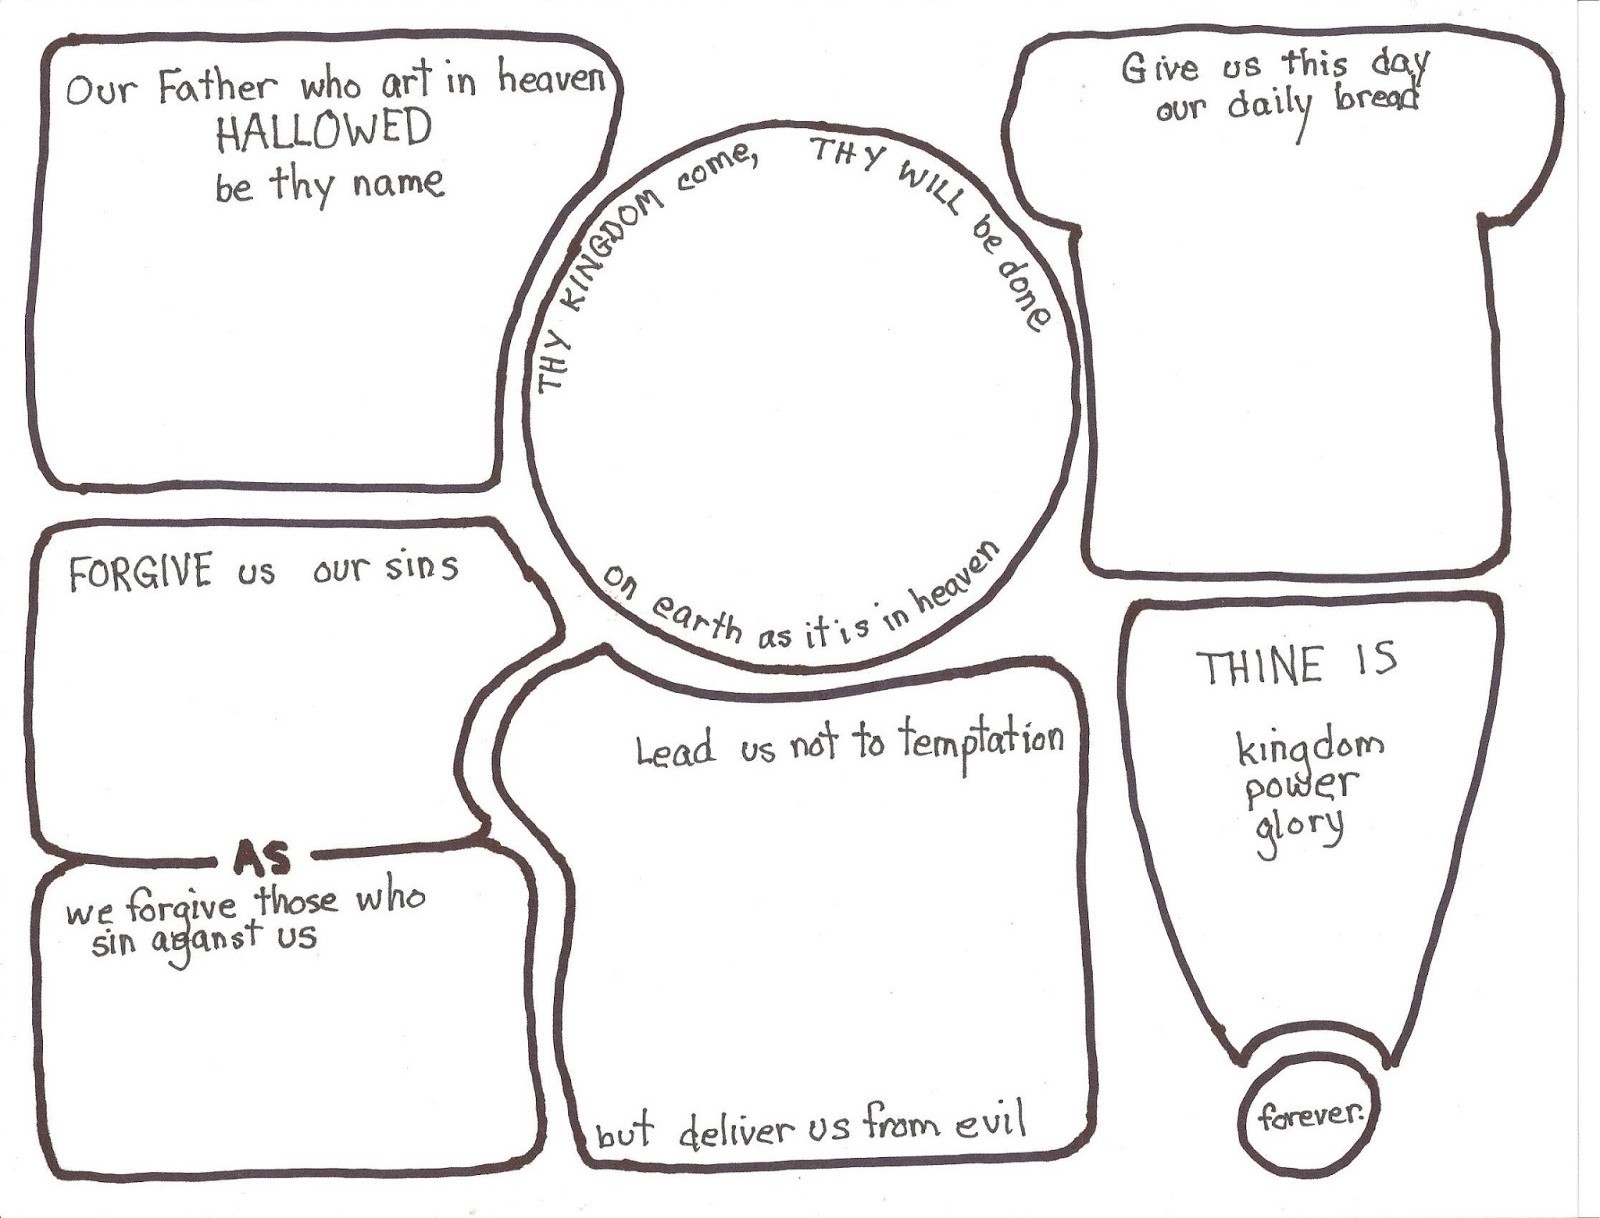 Our Father who art in heaven
HALLOWED
be thy name
THY KINGDOM come, THY WILL be done
on earth as it is in heaven
Give us this day
our daily bread
FORGIVE us our sins
AS
we forgive those who
sin aganst us
Lead us not to temptation
but deliver us from evil
THINE IS
kingdom
power
glory
forever.